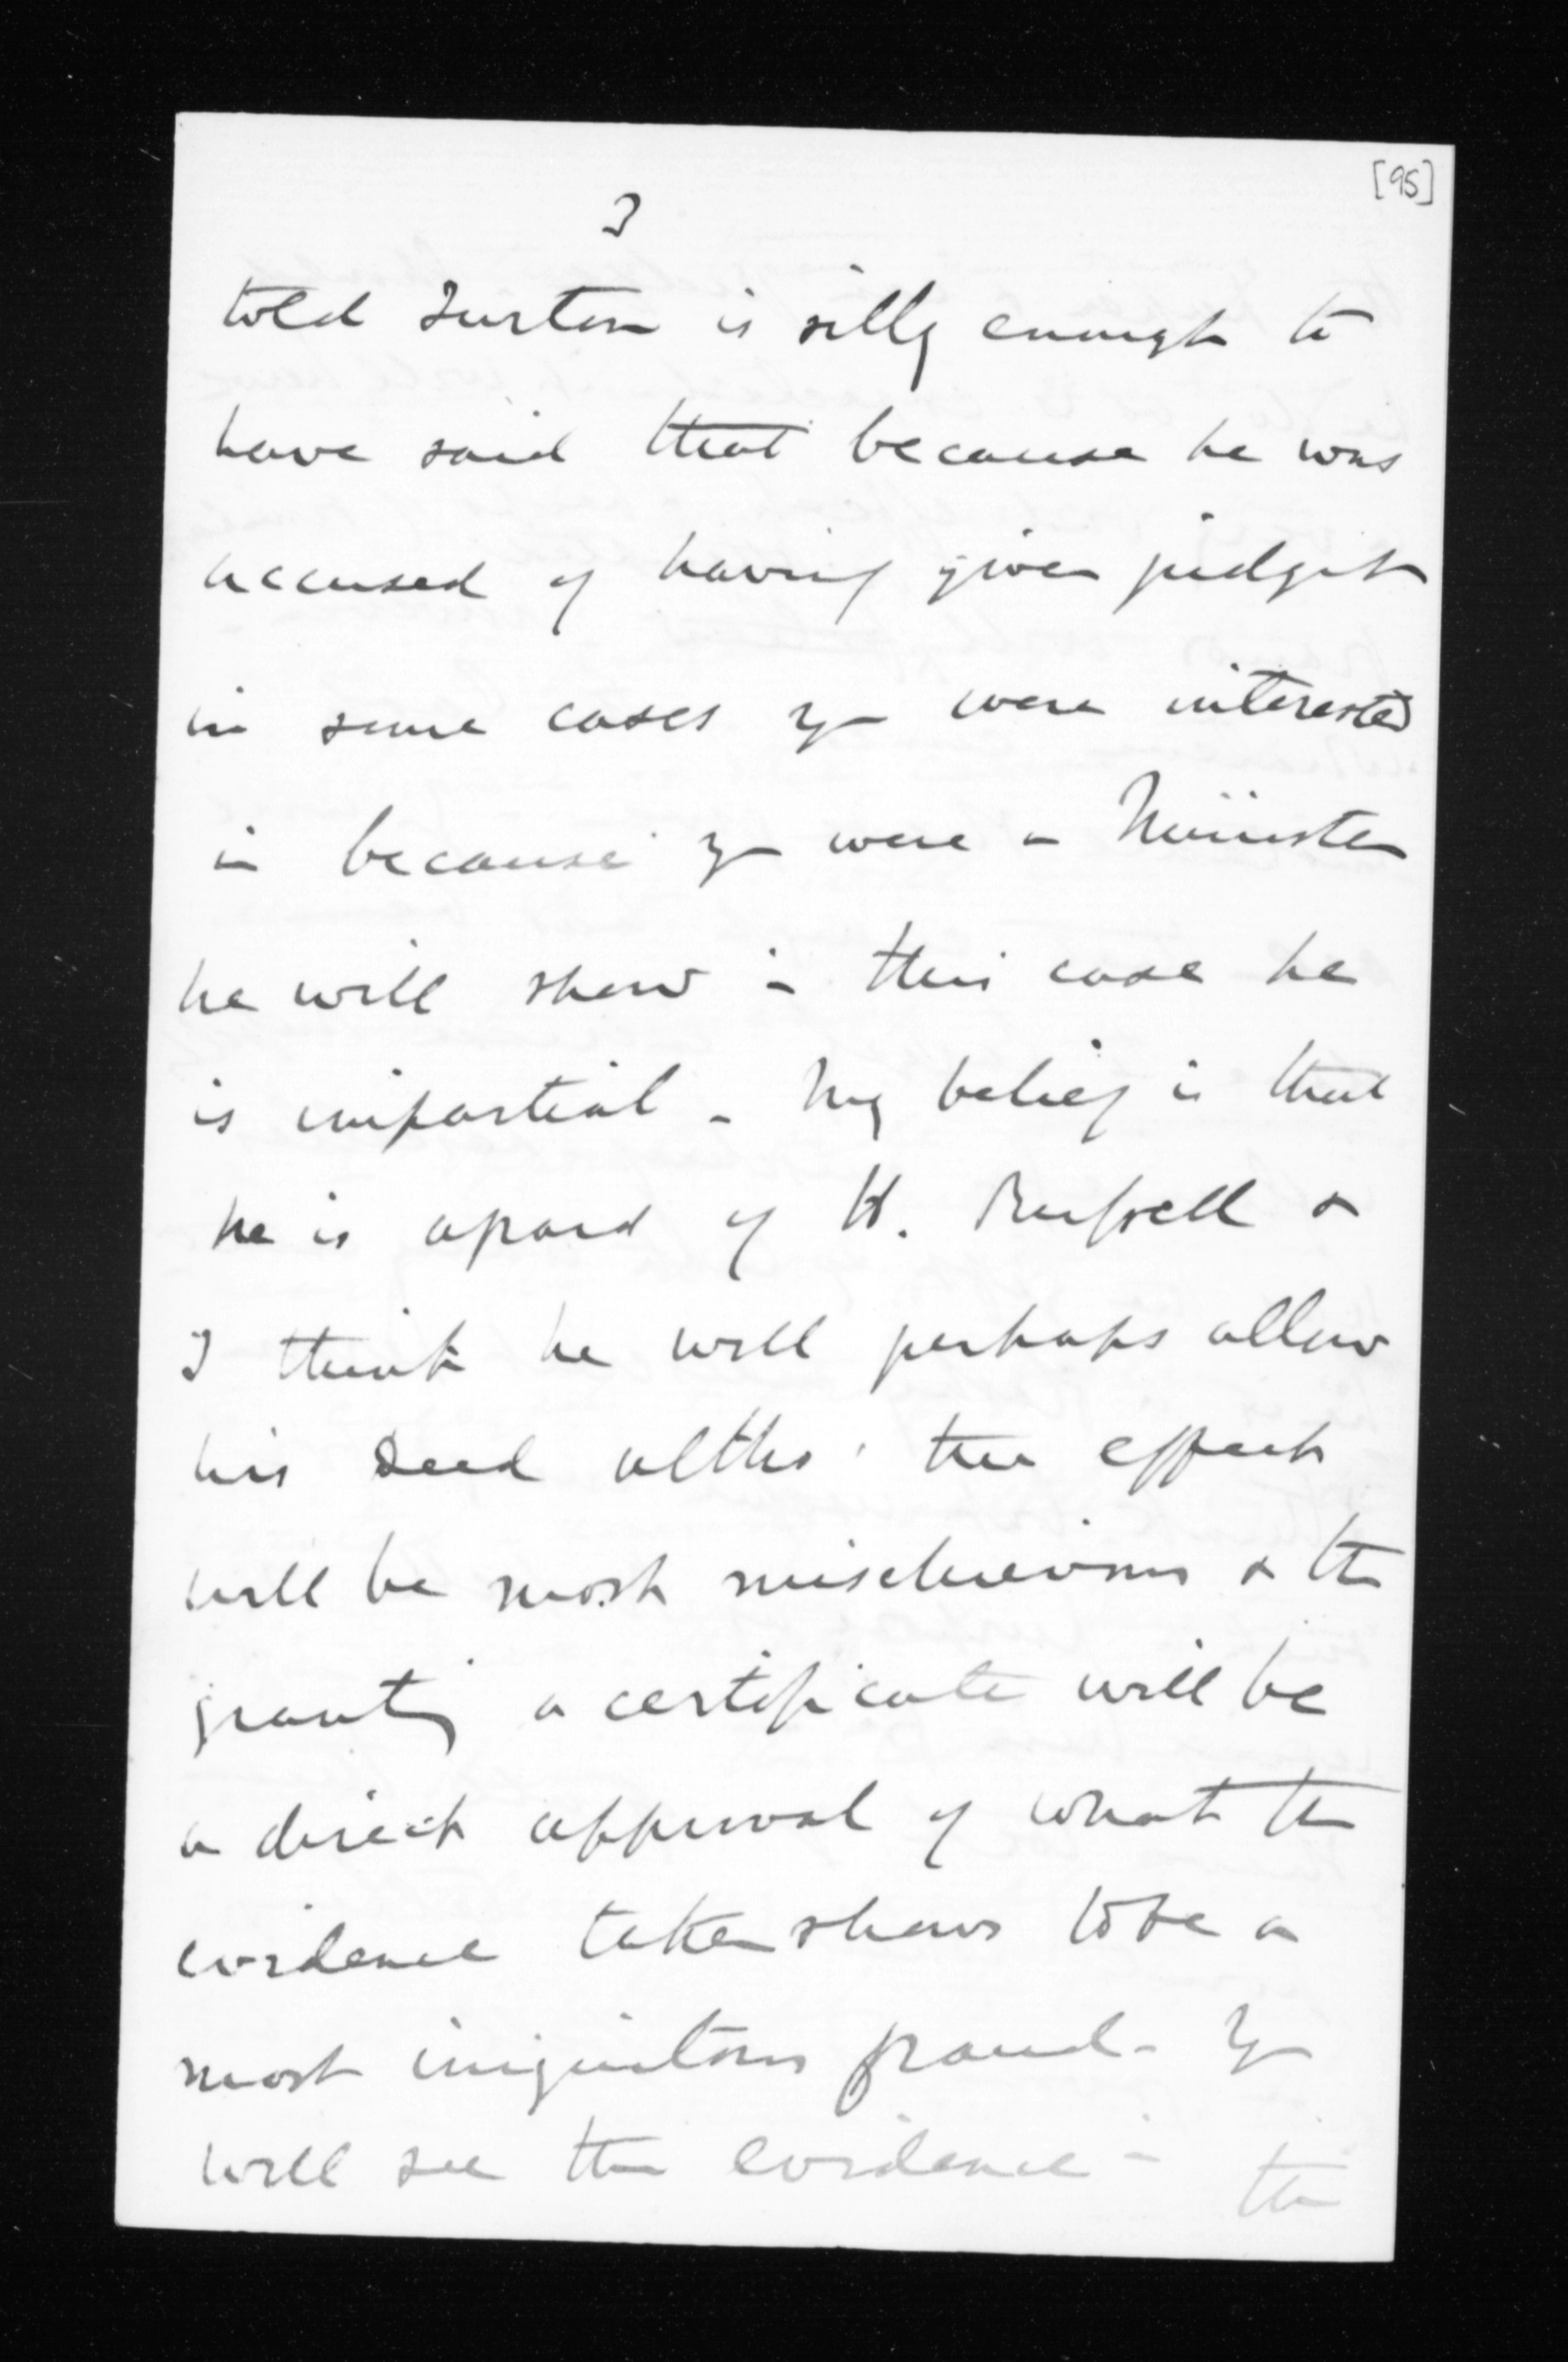 [95]
3
told Turton is silly enough to
have said that because he was
accused of having given judgt
in some cases yr were interested
in because yr were a Minister
he will show in this case he
is impartial - My belief is that
he is afraid of H. Russell &
I think he will perhaps allow
his deed altho' the effect
will be most mischievous & the
granting a certificate will be
a direct approval of what the
evidence taken shows to be a
most iniquitous fraud - Yr
will see the evidence in
the